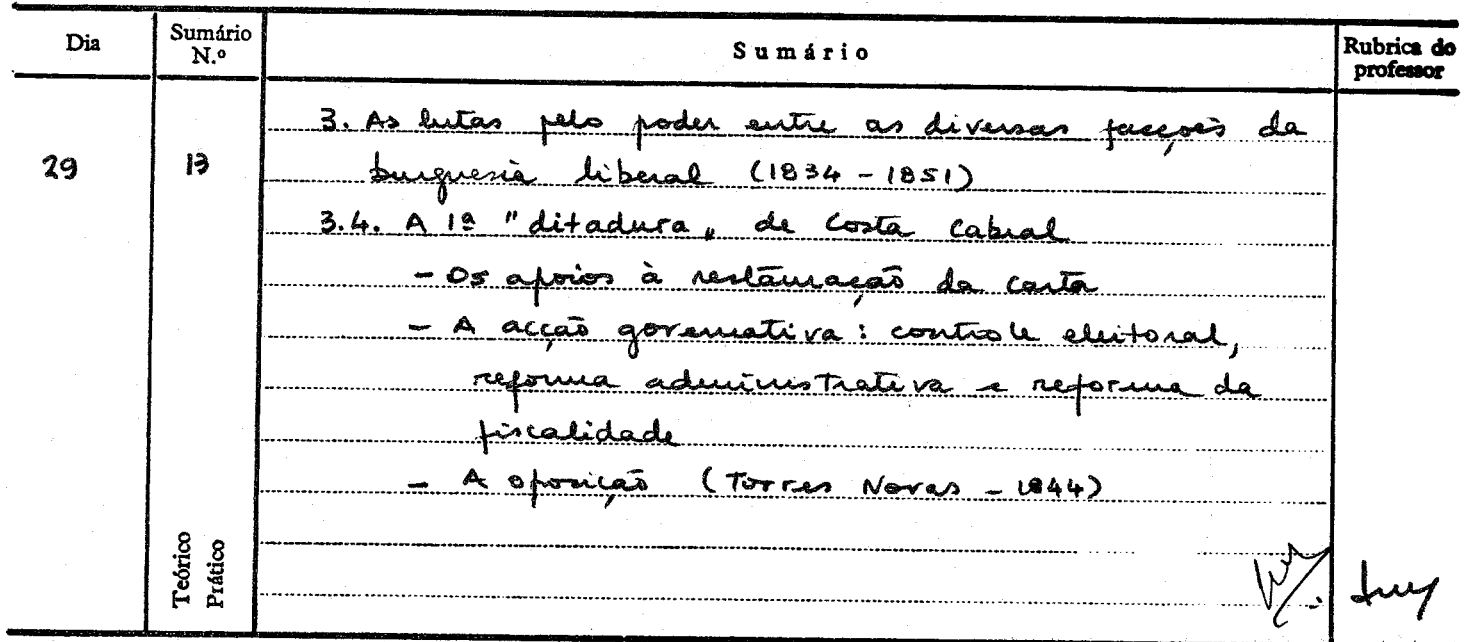 Dia
Sumário N.º
Sumário
Rubrica do professor
29
13
3. As lutas pelo poder entre as diversas facções da
burguesia liberal (1834 - 1851)
3.4. A 1ª "ditadura" de Costa Cabral
- Os apoios à restauração da Carta
- A acção governativa: controle eleitoral,
reforma administrativa e reforma da
fiscalidade
- A oposição (Torres Novas - 1844)
Teórico
Prático